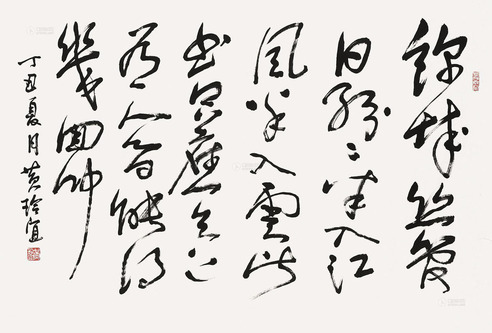 錦城丝管
日纷々半入江
風半入雲此
曲只應天上
有人間能得
幾回聞
丁丑夏月黄玲宜